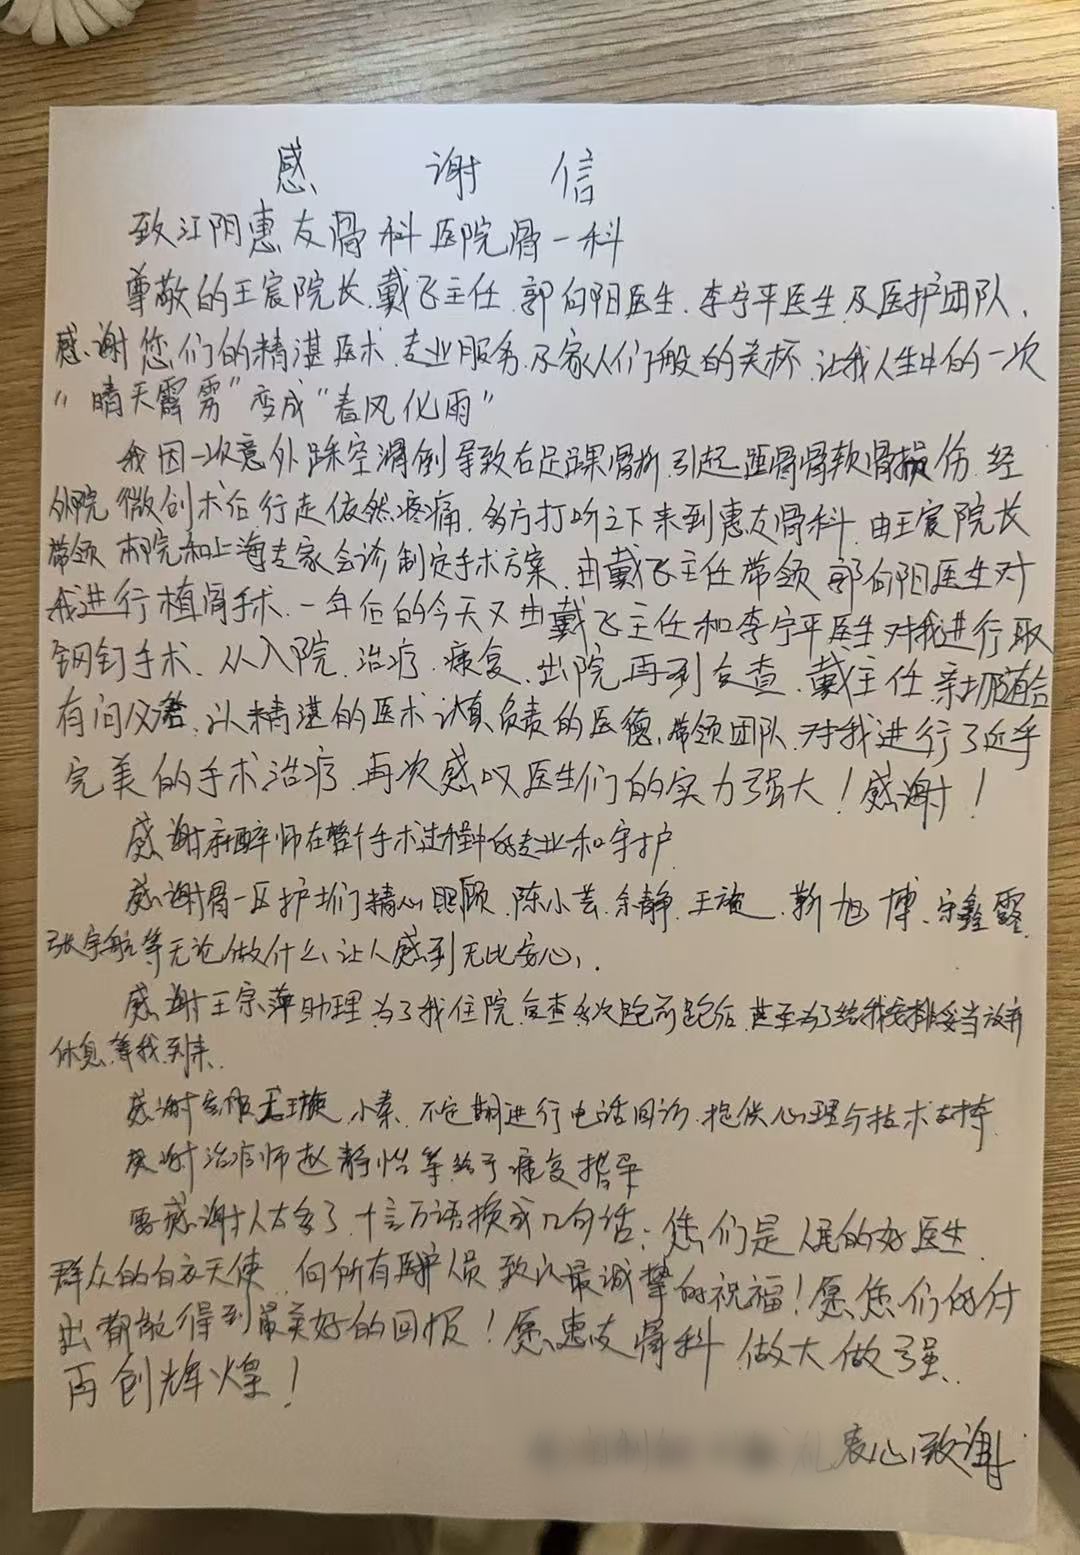 感谢信
致江阴惠友骨科医院骨一科
尊敬的王宸院长、戴飞主任、郭向阳医生、李宁平医生及医护团队、
感谢您们的精湛医术、专业服务及家人们般的关怀、让我人生中的一次
“晴天霹雳”变成“春风化雨”
我因一次意外踩空滑倒导致右足踝骨折、引起距骨骨软骨损伤、经
外院微创术后行走依然疼痛、多方打听之下来到惠友骨科、由王宸院长
带领本院和上海专家会诊制定手术方案、由戴飞主任带领郭向阳医生对
我进行植骨手术、一年后的今天又由戴飞主任和李宁平医生对我进行取
钢钉手术、从入院、治疗、康复、出院再到复查、戴主任亲切随合
有问必答、以精湛的医术认真负责的医德、带领团队、对我进行了近乎
完美的手术治疗、再次感叹医生们的实力强大！感谢！
感谢麻醉师在整个手术过程中的专业和守护
感谢骨一区护士们精心照顾、陈小芸、余静、王旋、靳旭博、宋鑫露、
张宇航等无论做什么、让人感到无比安心、
感谢王宗萍助理为了我住院、复查多次跑前跑后、甚至为了给我安排妥当放弃
休息、等我到来、
感谢客服王璇、小秦、不定期进行电话回访、提供心理与技术支持、
感谢治疗师赵静怡等给予康复指导
要感谢人太多了、千言万语换成几句话：您们是人民的好医生、
群众的白衣天使、向所有医护人员致以最诚挚的祝福！愿您们的付
出都能得到最美好的回报！愿惠友骨科做大做强、
再创辉煌！
衷心致谢